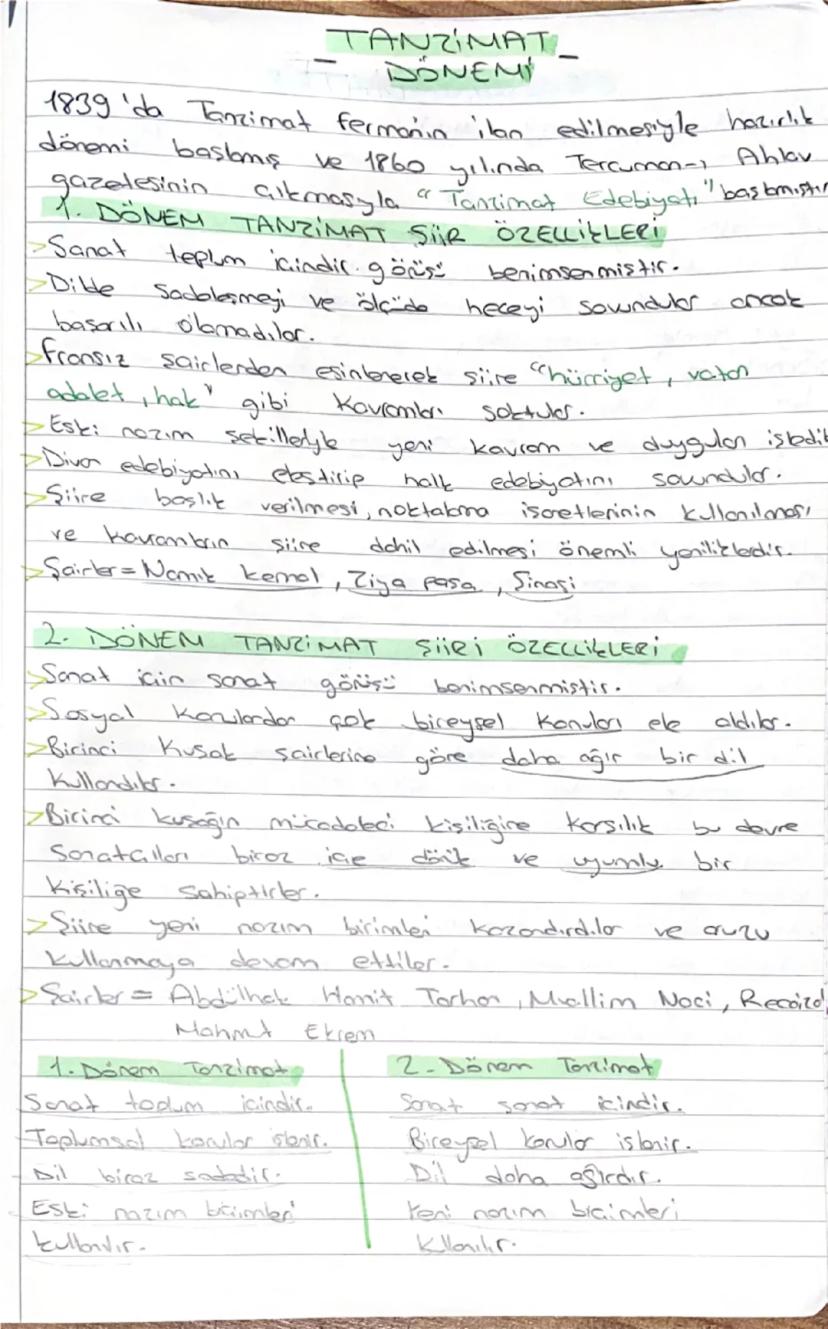 TANZİMAT
DÖNEMİ
1839'da Tanzimat fermanın ilan edilmesiyle hazırlık
dönemi başlamış ve 1860 yılında Tercuman-ı Ahlav
gazetesinin çıkmasıyla "Tanzimat Edebiyatı" başlamıştır
1. DÖNEM TANZİMAT ŞİİR ÖZELLİKLERİ
>Sanat toplum içindir. görüşü benimsenmiştir.
>Dilde sadeleşmeyi ve ölçüde heceyi savundular ancak
başarılı olamadılar.
>Fransız şairlerden esinlenerek şiire "hürriyet, vatan
adalet, hak" gibi kavramları soktular.
>Eski nazım şekilleriyle yeni kavram ve duyguları işledik
>Divan edebiyatını eleştirip halk edebiyatını savundular.
>Şiire başlık verilmesi, noktalama işaretlerinin kullanılması
ve kavramların şiire dahil edilmesi önemli yeniliklerdir.
>Şairler = Namık Kemal, Ziya Paşa, Şinasi
2. DÖNEM TANZİMAT ŞİİRİ ÖZELLİKLERİ
>Sanat için sanat görüşü benimsenmiştir.
>Sosyal konulardan çok bireysel konuları ele aldılar.
>Birinci Kuşak şairlerine göre daha ağır bir dil
kullandılar.
>Birinci kuşağın mücadeleci kişiliğine karşılık bu devre
sanatçıları biraz içe dönük ve uyumlu bir
kişiliğe sahiptirler.
>Şiire yeni nazım birimleri kazandırdılar ve aruzu
kullanmaya devam ettiler.
>Şairler = Abdülhak Hamit Tarhan, Muallim Naci, Recaizd
Mahmut Ekrem
1. Dönem Tanzimat
Sanat toplum içindir.
Toplumsal konular işlenir.
Dil biraz sadedir.
Eski nazım biçimleri
kullanılır.
2- Dönem Tanzimat
Sanat sanat içindir.
Bireysel konular işlenir.
Dil daha ağırdır.
Yeni nazım biçimleri
kllanılır.